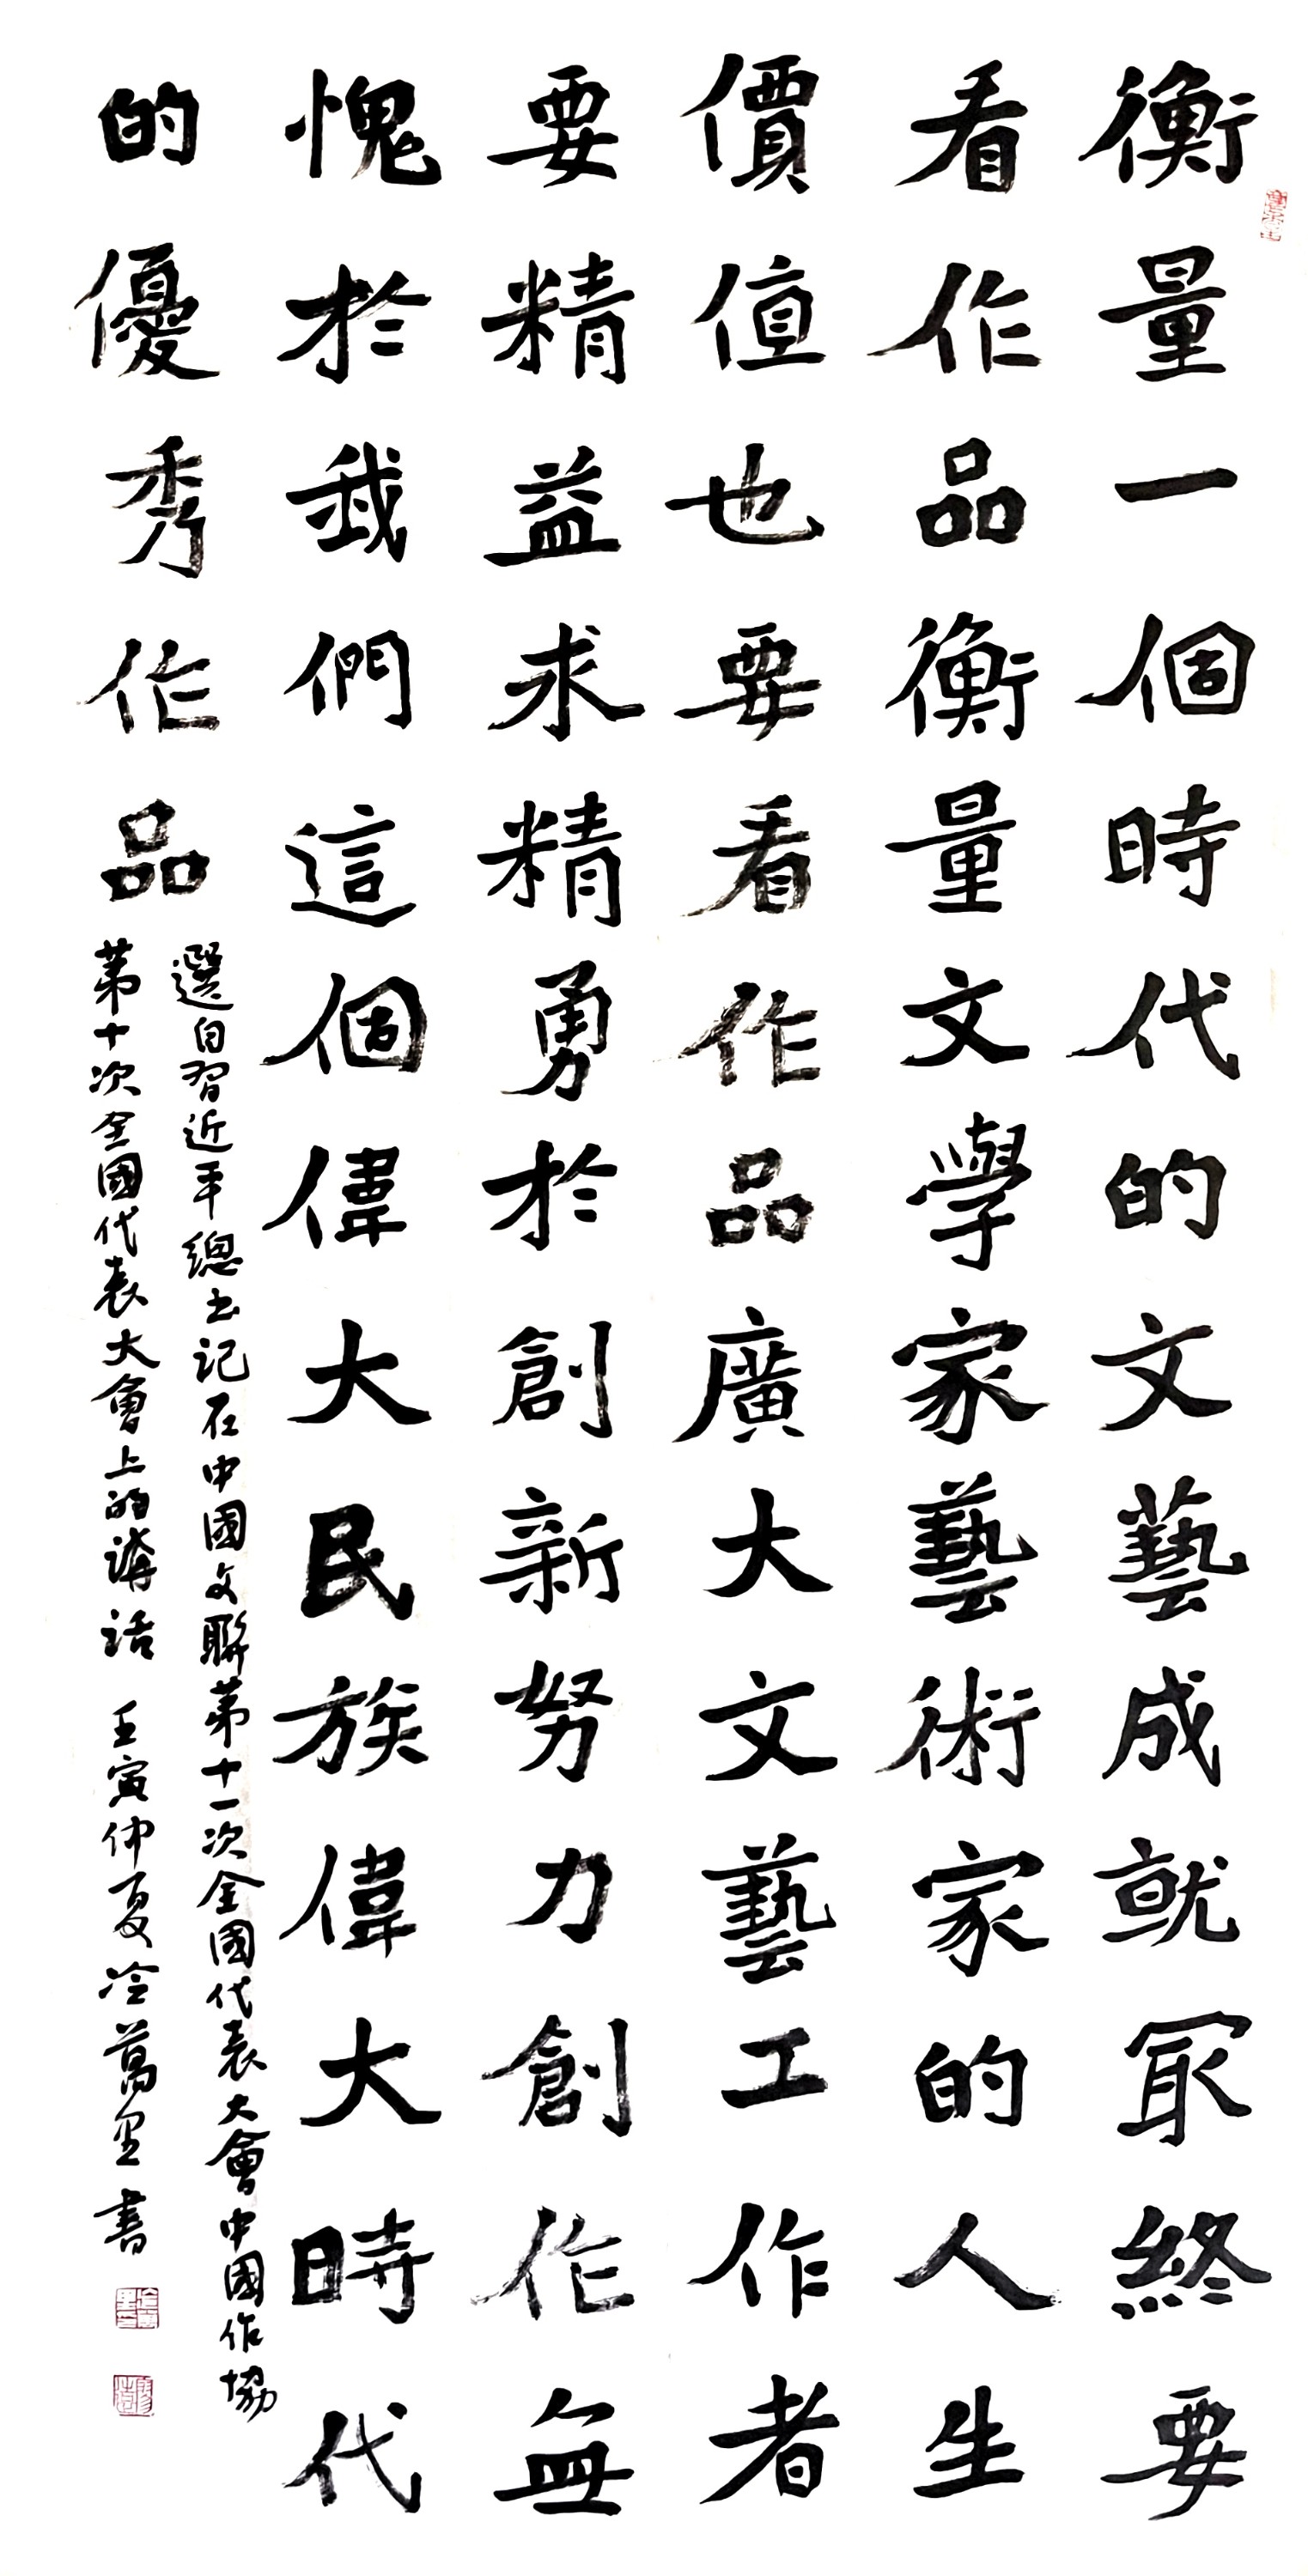 衡量一個時代的文藝成就冣終要
看作品衡量文學家藝術家的人生
價值也要看作品廣大文藝工作者
要精益求精勇於創新努力創作無
愧於我們這個偉大民族偉大時代
的優秀作品
選自習近平總書記在中國文聯第十一次全國代表大會中國作協
第十次全國代表大會上的講話 壬寅仲夏冷萬里書